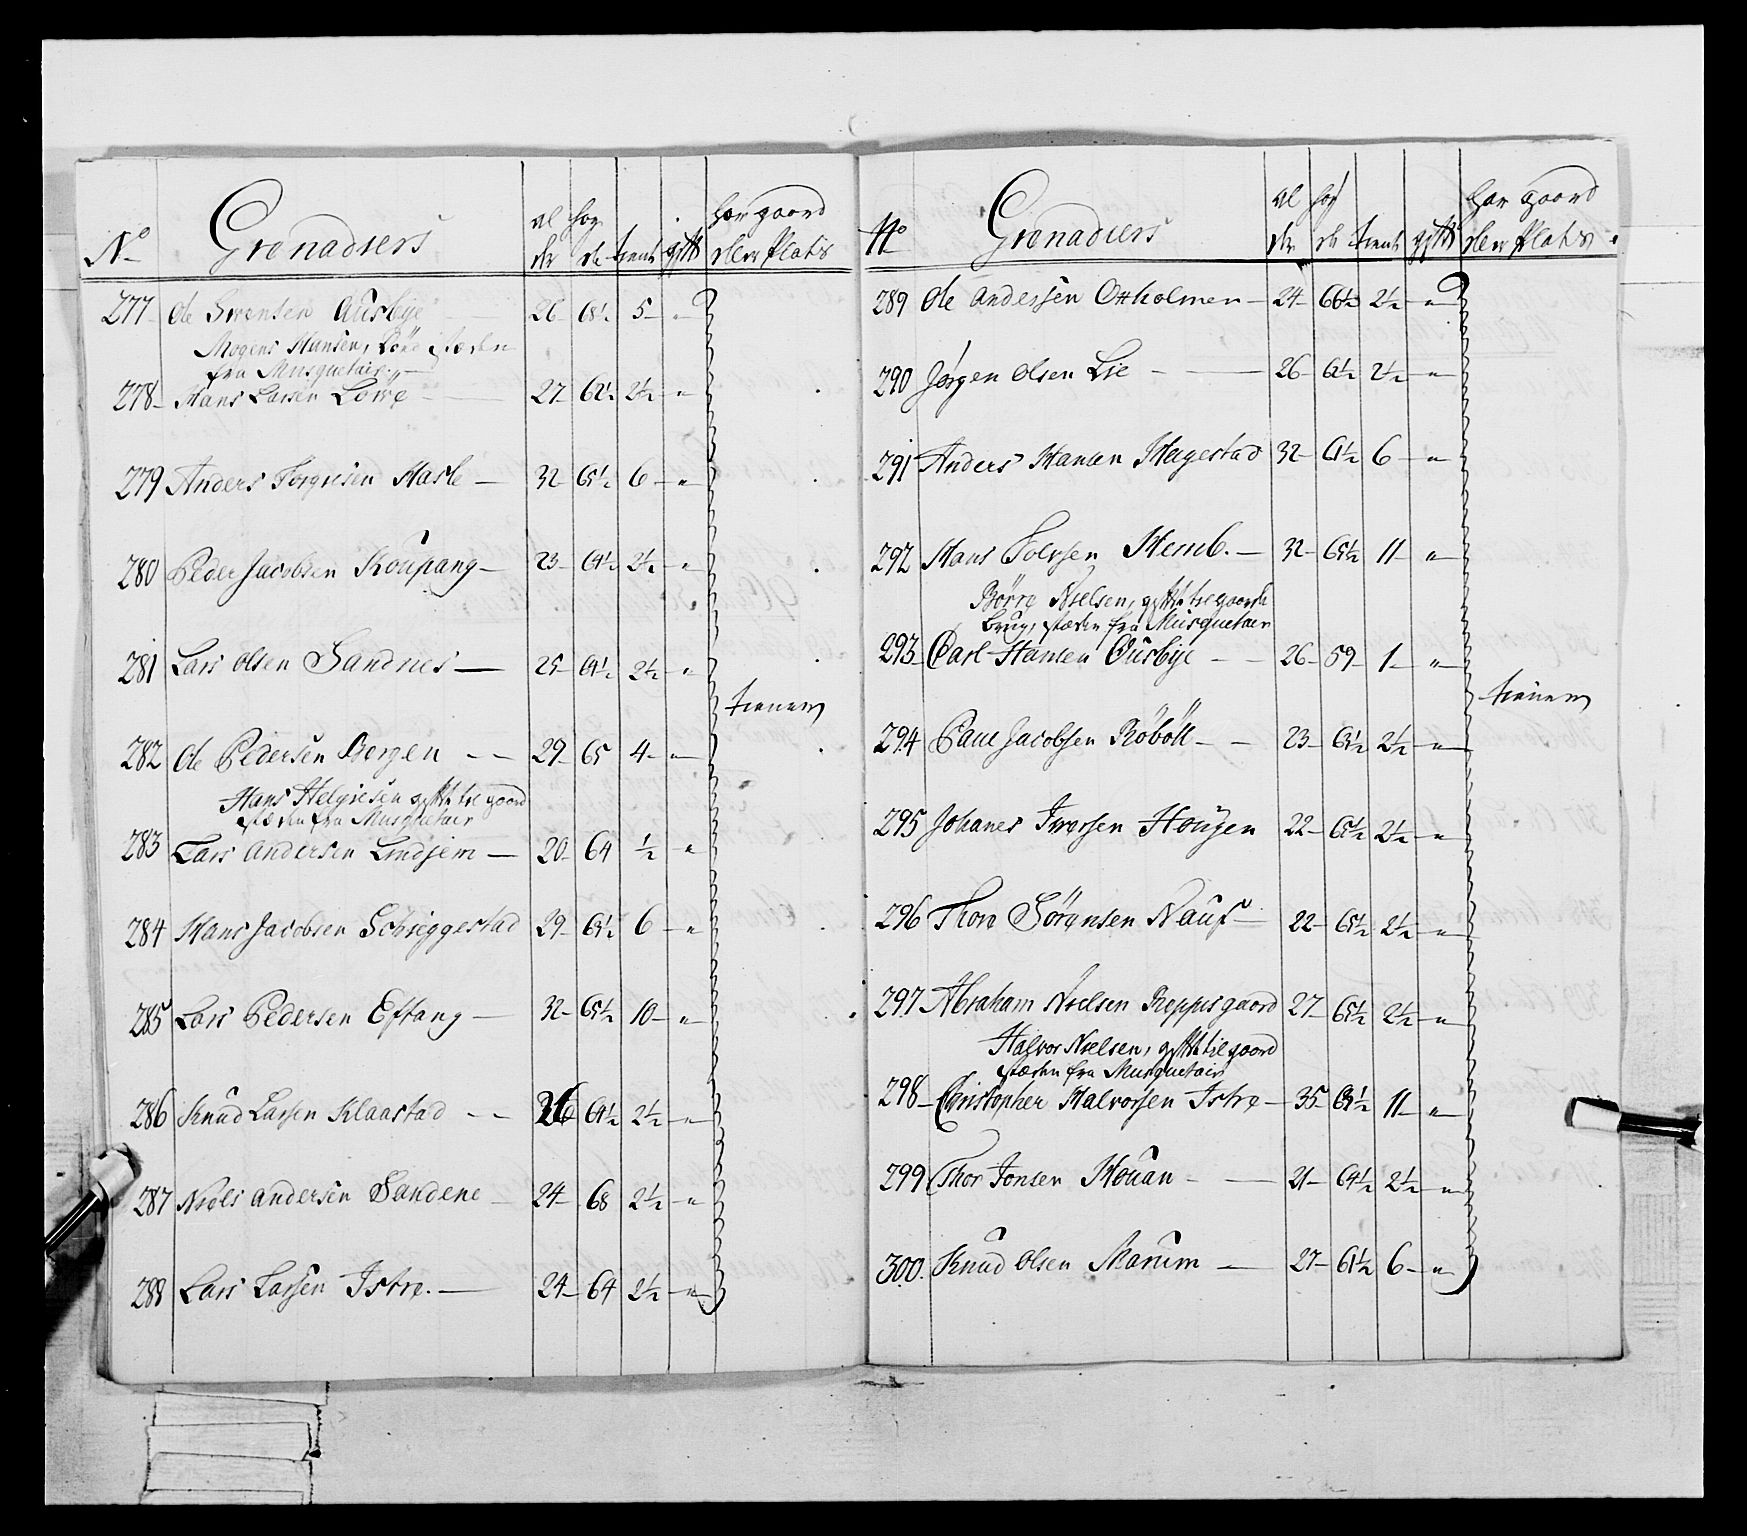 No Grenadiers al der høg de tient gift har gaard eller Platz
277 Ole Svensen Ousbÿe 26 68½ 5 "
Mogens Hansen,
fra Musquetair
278 Hans Larsen Löwe 27 62½ 2½ "
279 Anders Torgiesen Hasle 32 65½ 6 "
280 Peder Jacobsen Koupang 23 64½ 2½ "
281 Lars Olsen Sandnes 25 64½ 2½ "
tienern
282 Ole Pedersen Bergen 29 65 4 "
Hans Helgiesen gift til gaard
fra Musquetair
283 Lars Andersen Lindsem 20 64 ½ "
284 Hans Jacobsen Schieggestad 29 63½ 6 "
285 Lars Pedersen Eftang 32 65½ 10 "
286 Knud Larsen Klaastad 26 64½ 2½ "
287 Niels Andersen Sandene 24 68 2½ "
288 Lars Larsen Istre. 24 64 2½ "
No Grenadiers al der høy de tient gift har gaard eller Platz
289 Ole Andersen Ottholmen 24 66½ 2½ "
290 Jörgen Olsen Lie 26 62½ 2½ "
291 Anders Hansen Hegestad 32 61½ 6 "
292 Hans Solvsen Hemb. 32 65½ 11 "
Börre Nielsen, gift til gaards
brug, fra Musquetair
293 Carl Hansen Ousbÿe 26 59 1 "
tienern
294 Paul Jacobsen Röböll 23 63½ 2½ "
295 Johanes Iversen Hougen 22 65½ 2½ "
296 Thore Sörensen Nauf 22 65½ 2½ "
297 Abraham Nielsen Reppisgaard 27 65½ 2½ "
Halvor Nielsen, gift til gaard
fra Musquetair
298 Christopher Halvorsen Istre 35 63½ 11 "
299 Thor Jonsen Houan 21 64½ 2½ "
300. Knud Olsen Marum 27 61½ 6 "